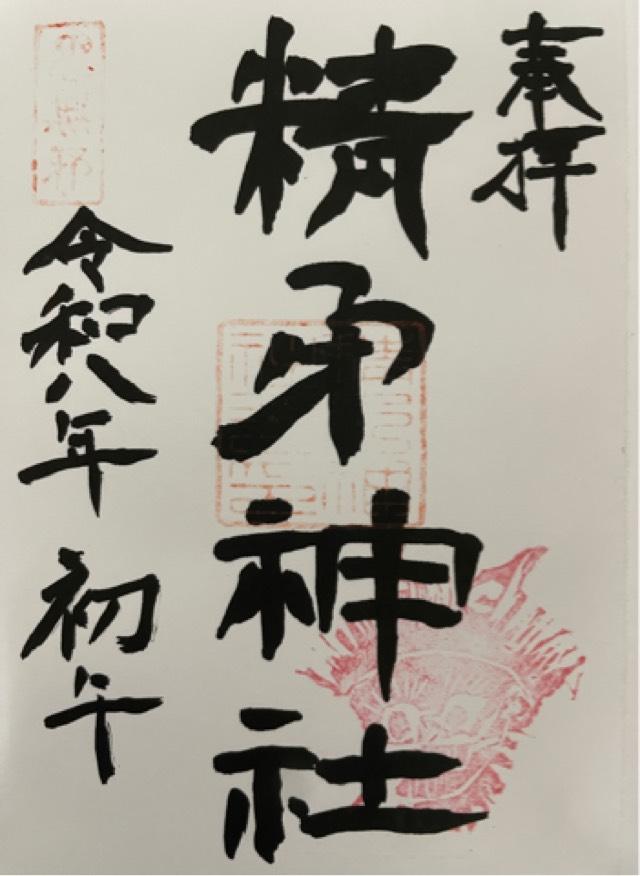 奉拝
精矛神社
令和八年 初午